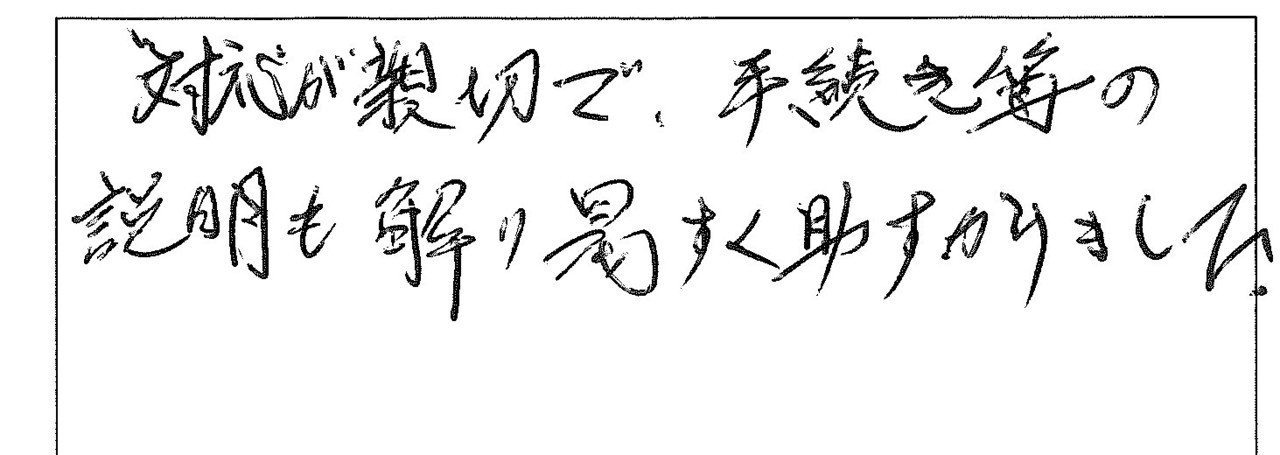 対応が親切で、手続き等の
説明も解り易すく助すかりました.